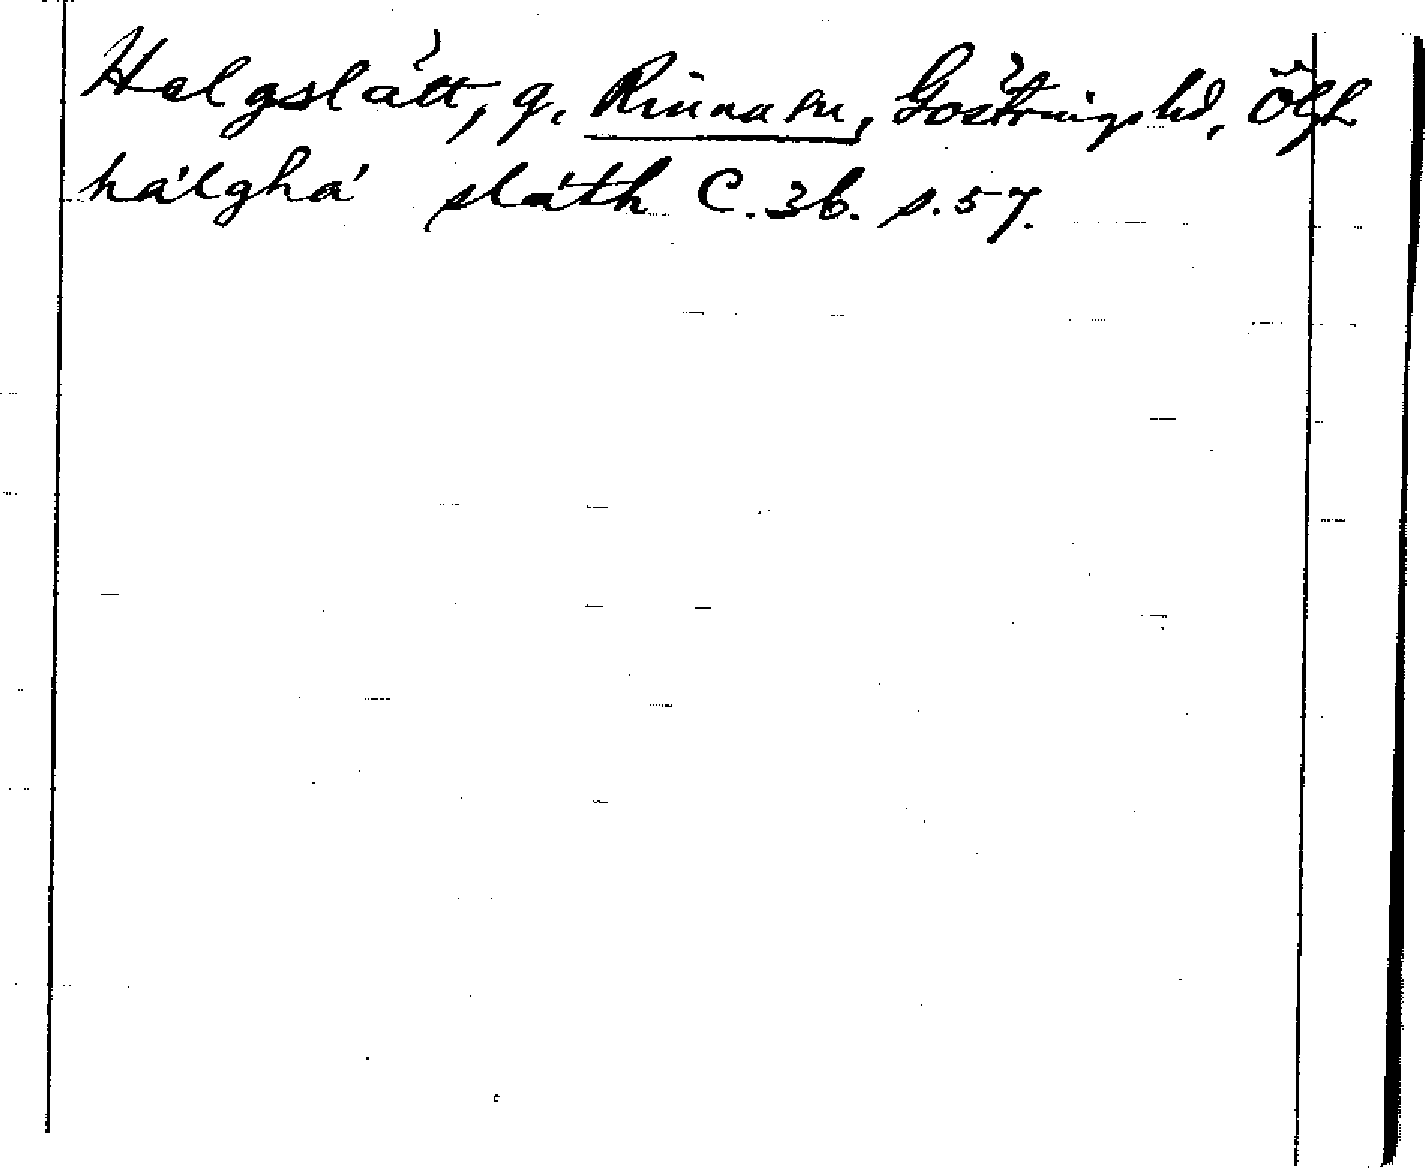 Helgslått, g. Rinna sn, Göstrings hd, Ögl
há'lghá' sláth C. 36. s. 57.